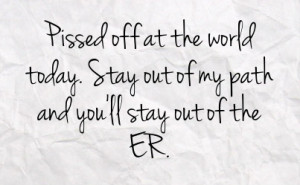 Pissed off at the world
today. Stay out of my path
and you'll stay out of the
ER.